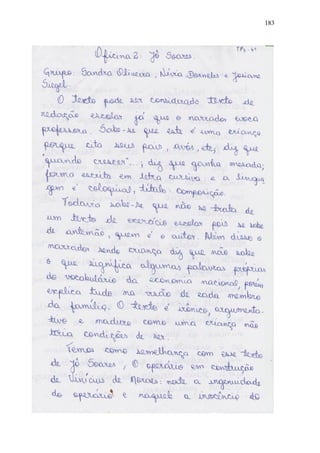 183
TP3-41
Oficina 2: Jô Soares.
Grupo: Sandra Oliveira, Néria Dornelles e Josiane
Siegel.
O Texto pode ser considerado texto de
redação escolar já que o narrador evoca
professora. Sabe-se que este é uma criança
porque cita seus pais, avós, etc, diz que
"quando crescer"...; diz que ganha mesada;
forma escrita em letra cursiva e a lingua
gem é coloquial, título: composição.
Todavia sabe-se que não se trata de
um texto de exercício escolar pois se sabe
de antemão, quem é o autor. Além disso o
narrador sendo criança diz que não sabe
o que significa algumas palavras próprias
do vocabulário da economia nacional, porém
explica tudo na visão de cada membro
da família. O texto é irônico, argumenta-
tivo e maduro como uma criança não
teria condições de ser.
Temos como semelhança com esse texto
de Jô Soares, O operário em construção
de Vinícius de Moraes: neste a ingenuidade
do operário e naquele a inocência do